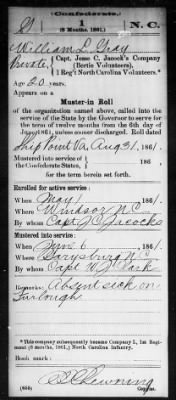 Confederate.
G 1 N.C.
(6 Months, 1861.)
William L. Gray
Private, Capt. Jesse C. Jacock's Company
(Bertie Volunteers),
1 Reg't North Carolina Volunteers.*
Age 20 years.
Appears on a
Muster-in Roll
of the organization named above, called into the
service of the State by the Governor to serve for
the term of twelve months from the 6th day of
June, 1861, unless sooner discharged. Roll dated
Ship Point Va, Aug 31, 1861.
Mustered into service of
the Confederate States, 186 .
for
Enrolled for active service:
When May 1, 1861.
Where Windsor N.C.
By whom Capt J.C. Jacocks
Mustered into service:
When June 6, 1861.
Where Garysburg N.C.
By whom Capt W.J. Clark
Remarks: Absent sick on
Furlough
*This company subsequently became Company L, 1st Regiment
(6 months, 1861,) North Carolina Infantry.
Book mark:
Chewning
Copyist.